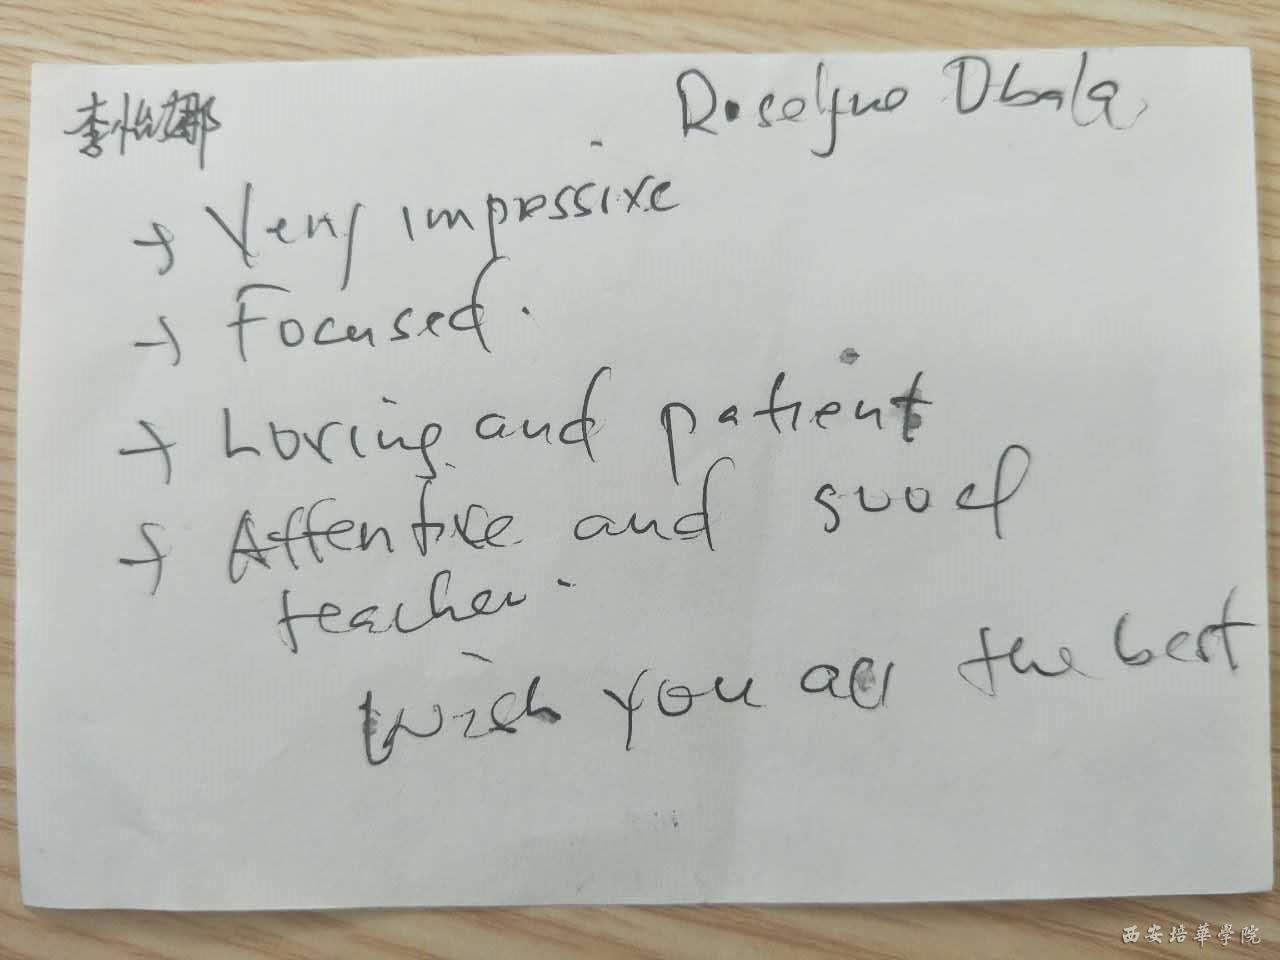 李怡娜
Roselyne Obala
→ Very impressive
→ Focused.
→ Loving and patient
→ Attentive and good
teacher.
Wish you all the best
西安培華學院